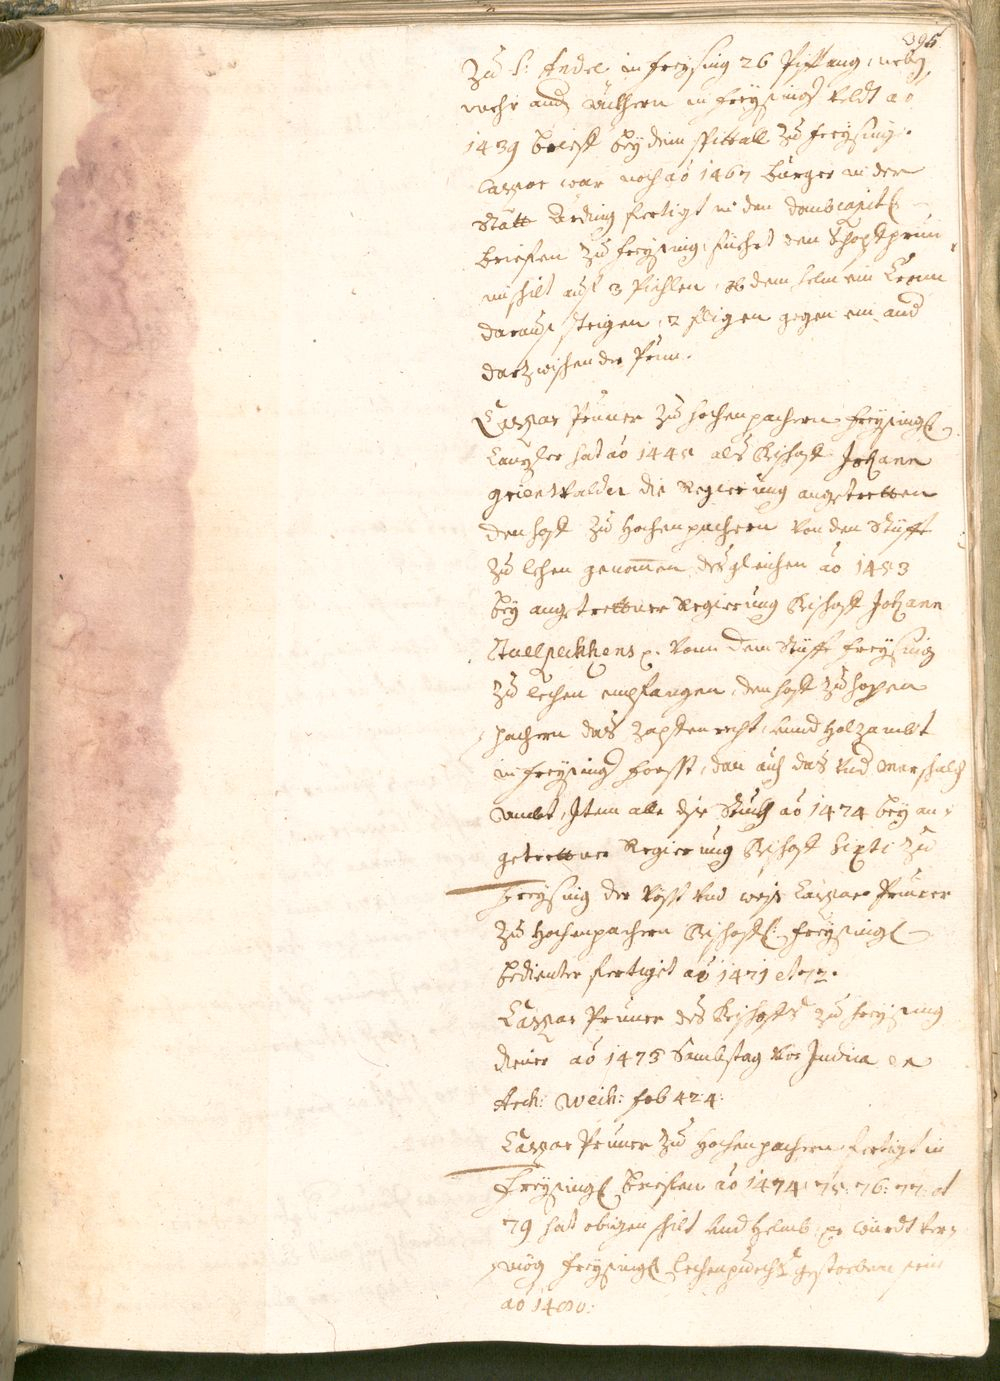 395
Zu S: Andre in Freysing 26 Pifang, nebst
mehr andern güthern in Freysinger Veldt ao
1439 Brieff bey dem Spitall zu Freysing.
Caspar war noch ao 1467 burger in der
Statt Ärding fertigt in den Dombcapitl
briefen zu Freysing, führt den Schopfprun
in schilt auf 3 Pichlen, ob dem helm ein Cronn
daraus steigen, 2 fligen gegen ein and
darzwischen der Prun.
Caspar Pruner zu Hochenpachern Freysingl
Canzler hat ao 144 als Bischoff Johann
Grienwalder die Regierung angetretten
den hoff zu Hochenpachern von den Stüfft
zu lehen genomen, desgleichen ao 1453
bey angetrettner Regierung Bischoff Johann
Tuelpekhens p. vom dem Stüfft Freysing
zu lechen empfangen, den hoff zu hohen
pachern das zapfenrecht, unnd Holzambt
in Freysinger Forsst, dan auch das Und Marschalch
Ambt, Item alle dise Stuckh ao 1474 bey an
getrettner Regierung Bischoff Sixti zu
Freysing der Vösst und weiß Caspar Pruner
zu Hochenpachern Bischoffl: Freysingl
bedienter fertiget ao 1471 et 72.
Caspar Pruner des Bischoffs zu Freysing
diener ao 1475 Sambstag vor Judica
Arch: Weich: fol 424:
Caspar Pruner zu Hochenpachern fertigt in
Freysingl Briefen ao 1474: 75: 76: 77: et
79 hat obigen schilt und Helmb, er würdt ver
mög Freysingl Lechenpuechs gestorben sein
ao 1480: